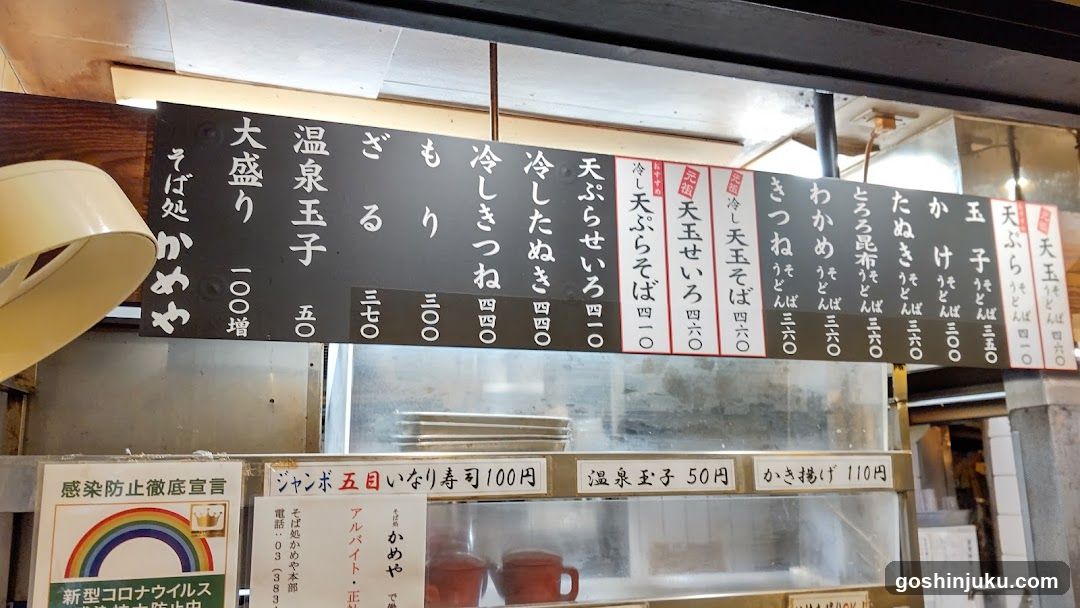 元祖 天玉 そば うどん 四六〇
天ぷら そば うどん 四一〇
玉子 そば うどん 三五〇
かけ そば うどん 三〇〇
たぬき そば うどん 三六〇
とろろ昆布 そば うどん 三六〇
わかめ そば うどん 三六〇
きつね そば うどん 三六〇
元祖 冷し天玉そば 四六〇
元祖 天玉せいろ 四六〇
おすすめ 冷し天ぷらそば 四一〇
天ぷらせいろ 四一〇
冷したぬき 四四〇
冷しきつね 四四〇
もり 三〇〇
ざる 三七〇
温泉玉子 五〇
大盛り 一〇〇増
そば処 かめや
ジャンボ五目いなり寿司100円
温泉玉子 50円
かき揚げ 110円
感染防止徹底宣言
新型コロナウイルス
そば処 かめや で
アルバイト・正社
そば処かめや本部
電話:03(383
goshinjuku.com